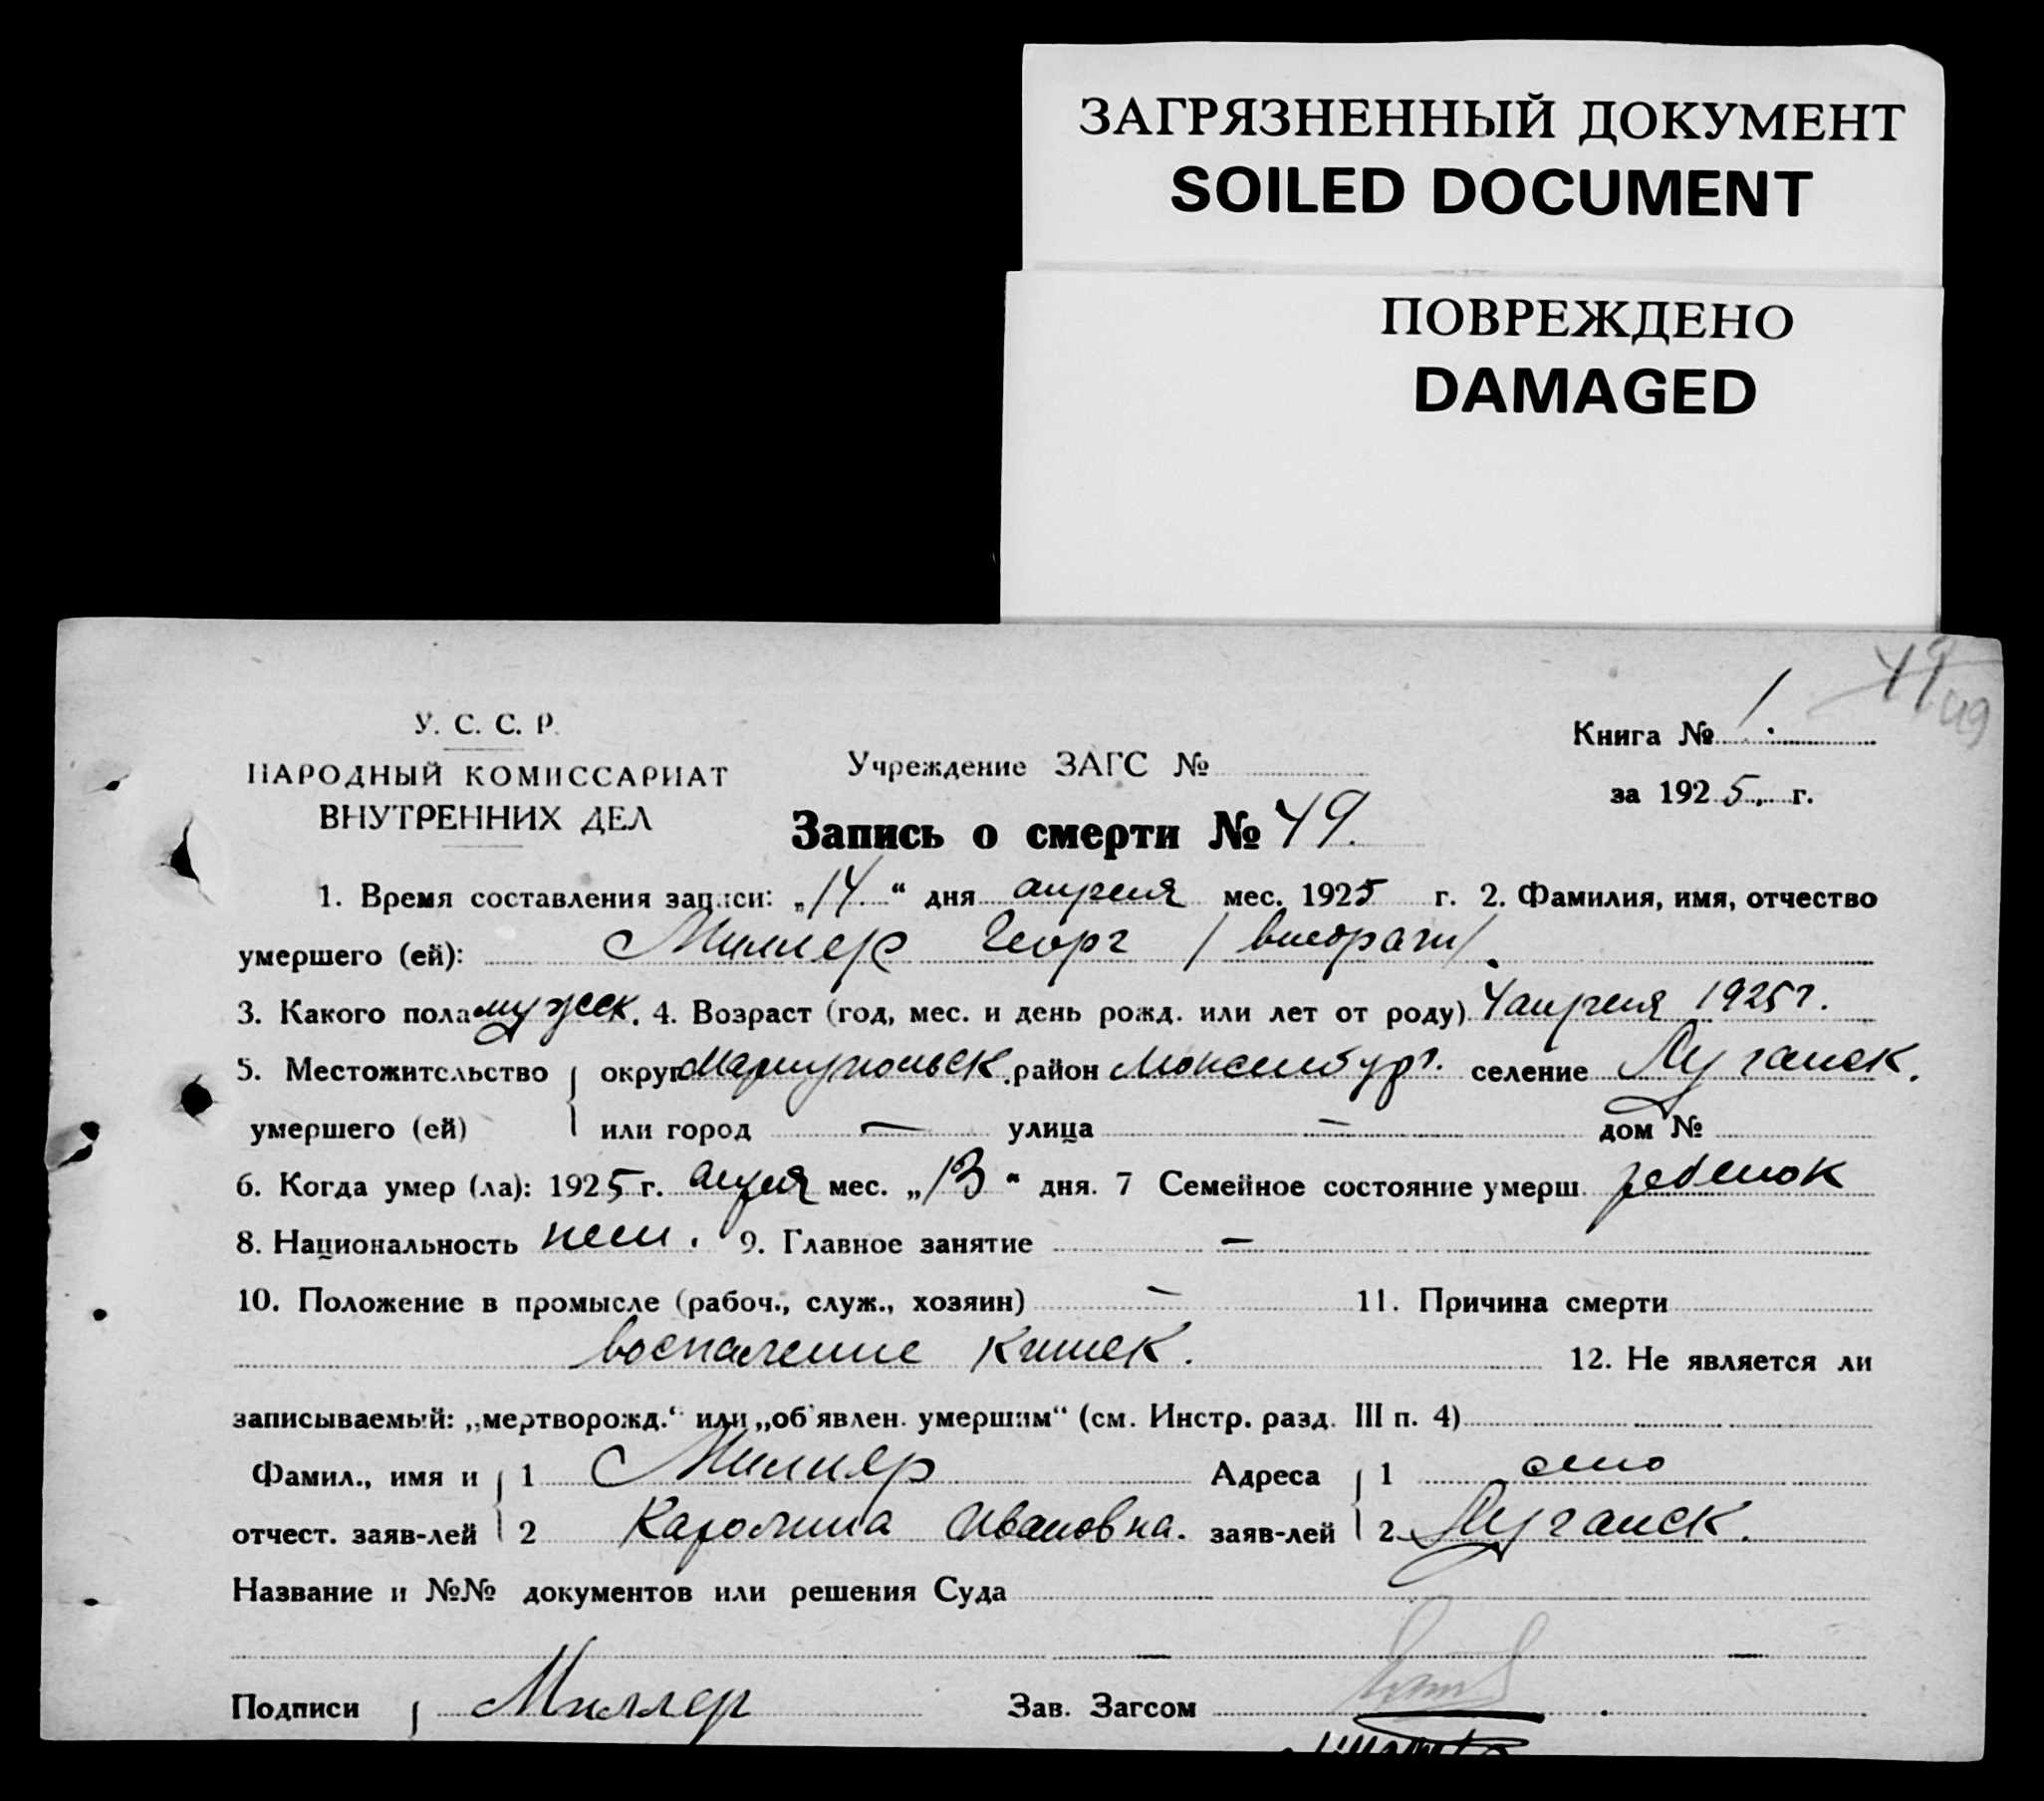 ЗАГРЯЗНЕННЫЙ ДОКУМЕНТ
SOILED DOCUMENT
ПОВРЕЖДЕНО
DAMAGED
49
49
У. С. С. Р.
НАРОДНЫЙ КОМИССАРИАТ
ВНУТРЕННИХ ДЕЛ
Учреждение ЗАГС №
Книга № 1.
за 1925. г.
Запись о смерти № 49.
1. Время составления записи: „14“ дня апреля мес. 1925 г. 2. Фамилия, имя, отчество
умершего (ей): Миллер Георг /
3. Какого пола мужск. 4. Возраст (год, мес. и день рожд. или лет от роду) 4 апреля 1925 г.
5. Местожительство округ Мариупольск. район Люксембург. селение Луганск.
умершего (ей) или город — улица — дом №
6. Когда умер (ла): 1925 г. апреля мес. „13“ дня. 7 Семейное состояние умерш. ребенок
8. Национальность нем. 9. Главное занятие —
10. Положение в промысле (рабоч., служ., хозяин) — 11. Причина смерти
воспаление кишек. 12. Не является ли
записываемый: „мертворожд.“ или „об'явлен. умершим“ (см. Инстр. разд. III п. 4)
Фамил., имя и 1 Миллер Адреса 1 село
отчест. заяв-лей 2 Каролина Ивановна. заяв-лей 2 Луганск.
Название и №№ документов или решения Суда
— —
Подписи Миллер Зав. Загсом